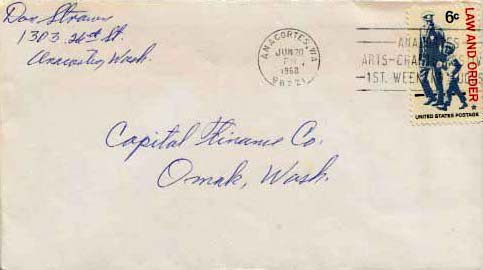 Don Strawn
1303 26th St.
Anacortes, Wash.
ANACORTES, WA
JUN 20
PM
1968
98221
ARTS-CRA
1ST. WEEK
6c
LAW AND ORDER
UNITED STATES POSTAGE
Capital Finance Co.
Omak, Wash.